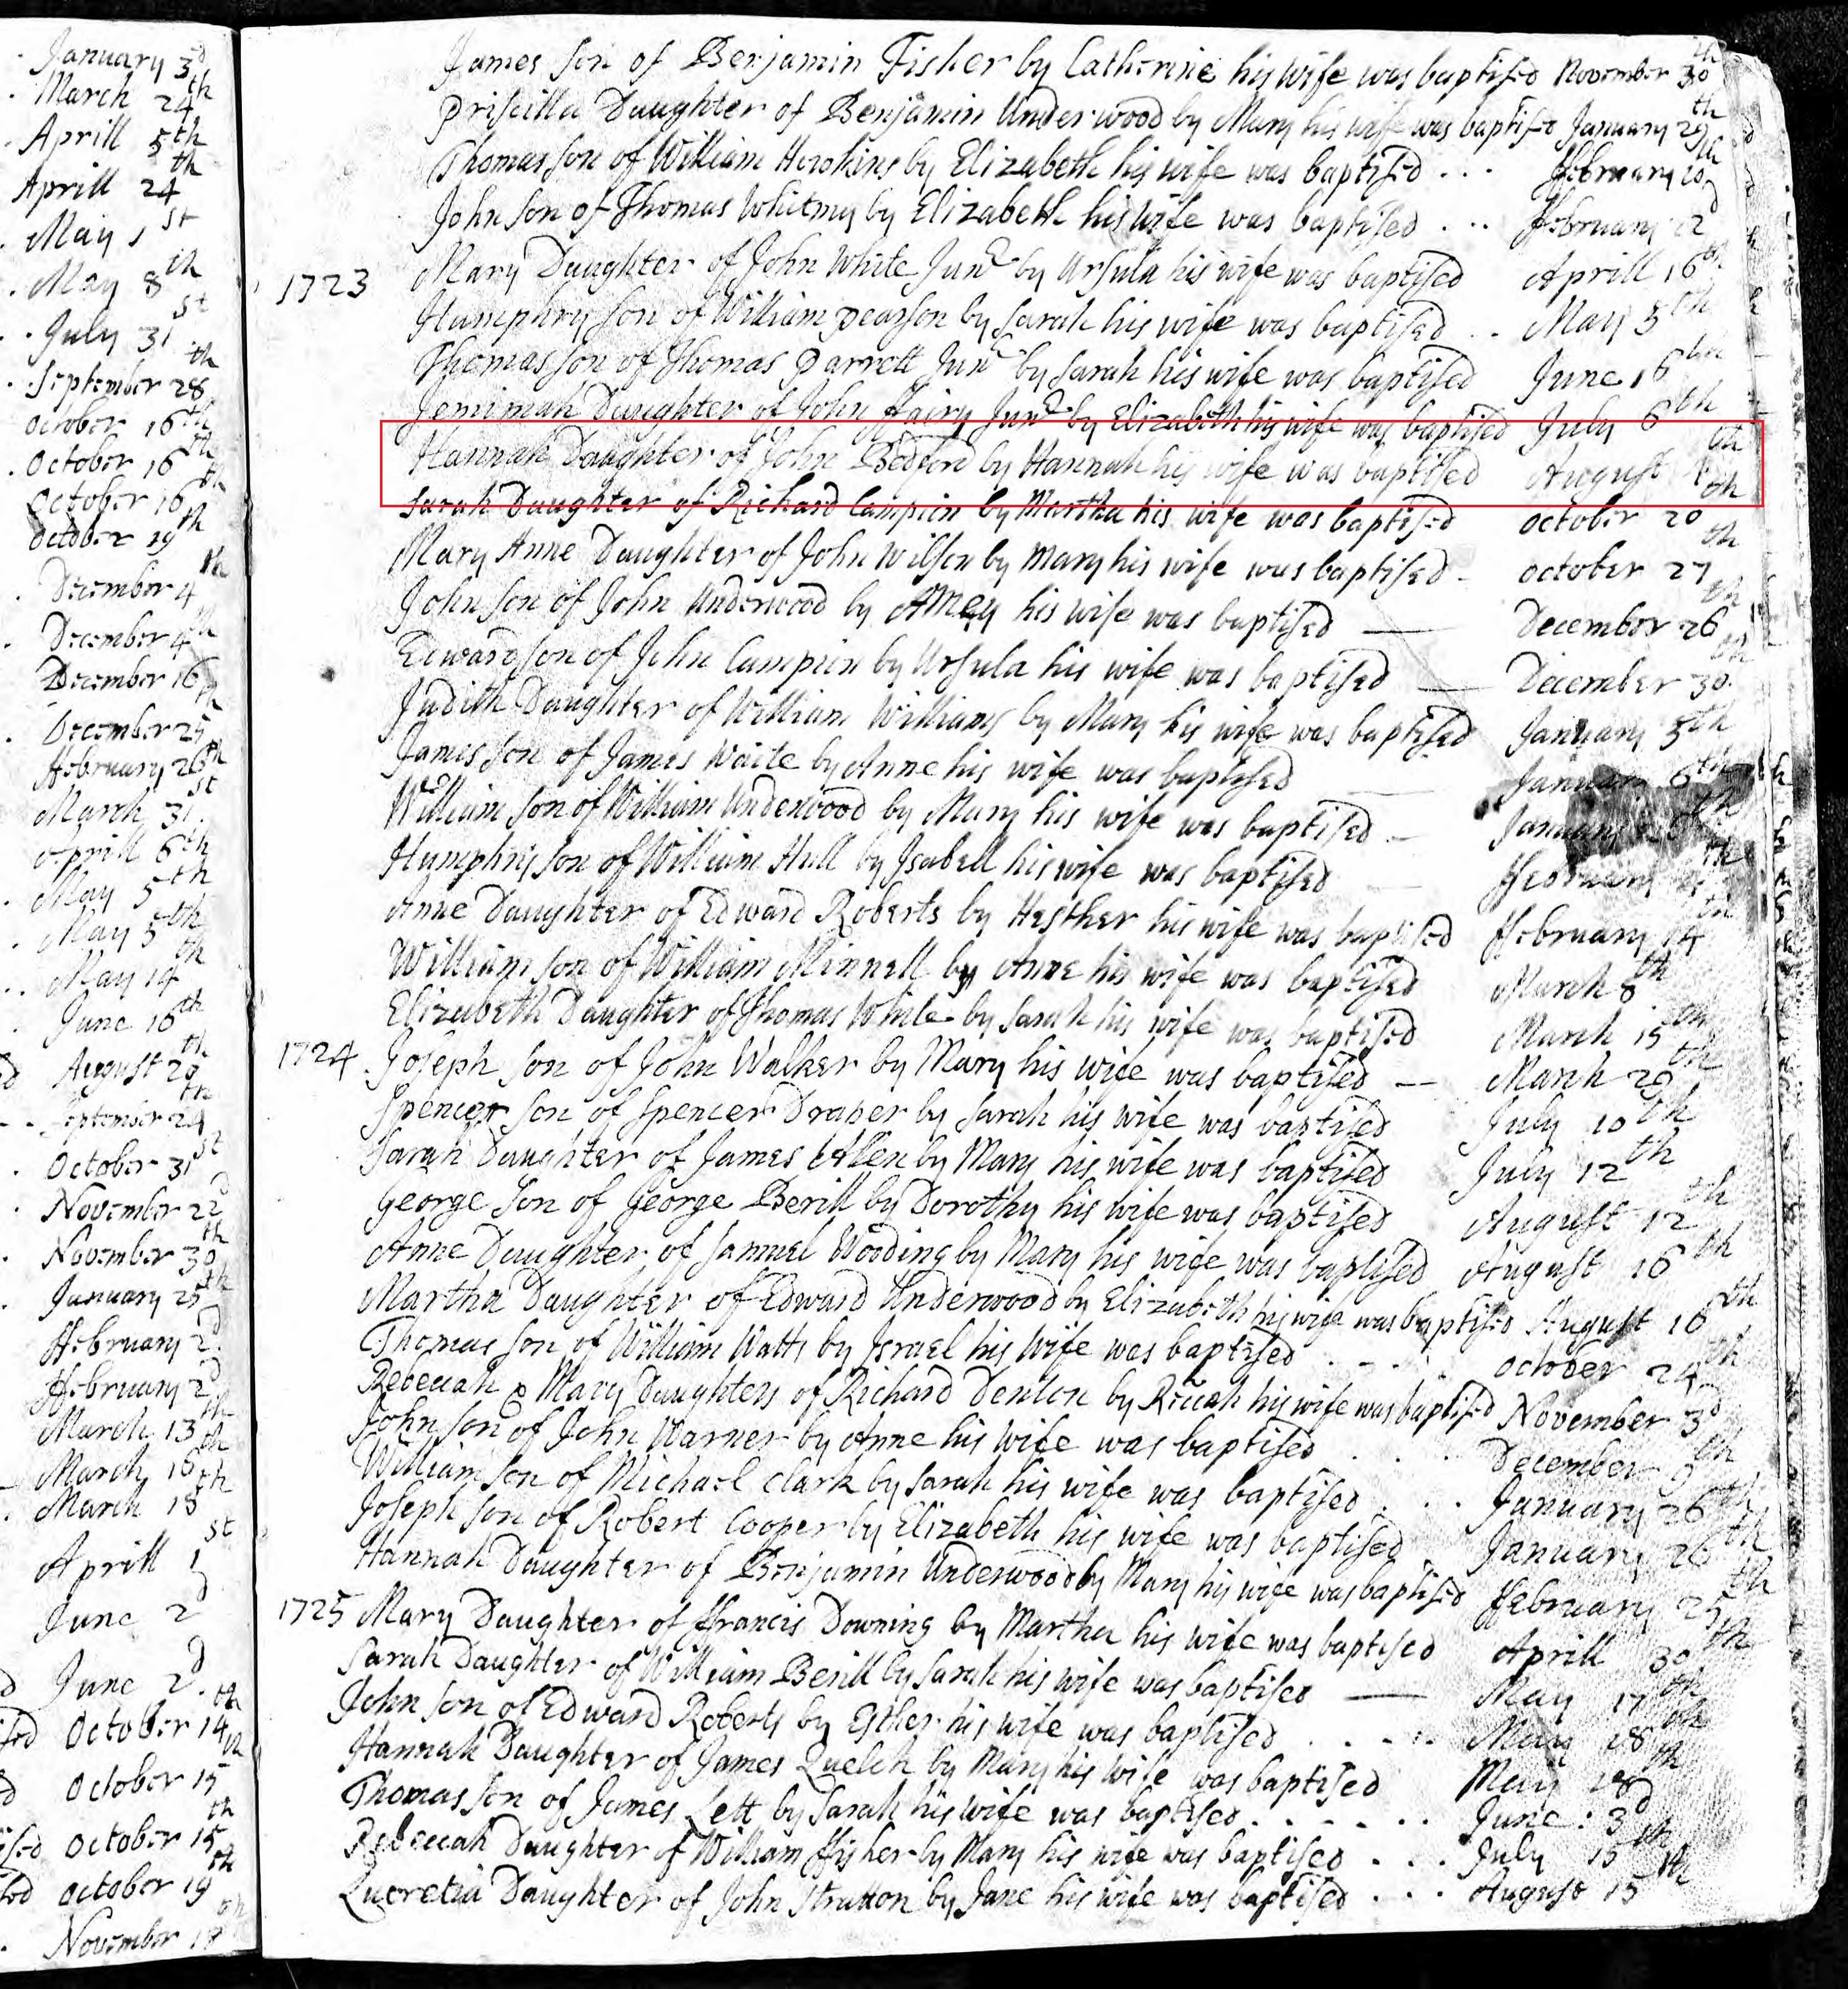 January 3d
March 24th
Aprill 5th
Aprill 24th
May 1st
May 8th
July 31st
September 28th
October 16th
October 16th
October 16th
October 19th
December 4th
December 4th
December 16th
December 25th
ffebruary 26th
March 31st
Aprill 6th
May 5th
May 5th
May 14th
June 16th
August 29th
September 29th
October 31st
November 22d
November 30th
January 25th
ffebruary 2d
ffebruary 2d
March 13th
March 16th
March 18th
Aprill 1st
June 2d
June 2d
October 14th
October 15th
October 15th
October 19th
November
James son of Benjamin Fisher by Catherine his wife was baptised November 30th
Priscilla Daughter of Benjamin Underwood by Mary his wife was baptised January 29th
Thomas son of William Hawkins by Elizabeth his wife was baptised ... ffebruary 20th
John son of Thomas Whitmy by Elizabeth his wife was baptised ... ffebruary 22d
1723 Mary Daughter of John White Junr by Ursula his wife was baptised Aprill 16th
Humphry son of William Pearson by Sarah his wife was baptised .. May 5th
Thomas son of Thomas Parrett Junr by Sarah his wife was baptised June 16th
Jemimah Daughter of John ffairy Junr by Elizabeth his wife was baptised July 6th
Hannah Daughter of John Bedford by Hannah his wife was baptised August th
Sarah Daughter of Richard Campion by Martha his wife was baptised October 20th
Mary Anne Daughter of John Wilson by Mary his wife was baptised - October 27th
John son of John Underwood by Amey his wife was baptised — December 26th
Edward son of John Campion by Ursula his wife was baptised — December 30th
Judith Daughter of William Williams by Mary his wife was baptised January 5th
James son of James Waite by Anne his wife was baptised January 6th
William son of William Underwood by Mary his wife was baptised - January th
Humphry son of William Hull by Isabell his wife was baptised ffebruary th
Anne Daughter of Edward Roberts by Hesther his wife was baptised ffebruary 14th
William son of William Minnell by Anne his wife was baptised March 8th
Elizabeth Daughter of Thomas White by Sarah his wife was baptised March 15th
1724 Joseph son of John Walker by Mary his wife was baptised -- March 29th
Spencer son of Spencer Draper by Sarah his wife was baptised July 10th
Sarah Daughter of James Allen by Mary his wife was baptised July 12th
George son of George Berill by Dorothy his wife was baptised August 12th
Anne Daughter of Samuel Wooding by Mary his wife was baptised August 16th
Martha Daughter of Edward Underwood by Elizabeth his wife was baptised August 16th
Thomas son of William Watts by Israel his wife was baptised . - . October 24th
Rebeccah & Mary Daughters of Richard Denton by Reccah his wife was baptised November 3d
John son of John Warner by Anne his wife was baptised . . . December 9th
William son of Michael Clark by Sarah his wife was baptised . . . January 26th
Joseph son of Robert Cooper by Elizabeth his wife was baptised January 26th
Hannah Daughter of Benjamin Underwood by Mary his wife was baptised ffebruary 25th
1725 Mary Daughter of ffrancis Downing by Martha his wife was baptised Aprill 30th
Sarah Daughter of William Berill by Sarah his wife was baptised — May 17th
John son of Edward Roberts by Esther his wife was baptised . . - . . May 18th
Hannah Daughter of James Quelch by Mary his wife was baptised May 18th
Thomas son of James Lett by Sarah his wife was baptised . . . . . . June . 3d
Rebeccah Daughter of William ffisher by Mary his wife was baptised . . . July 15th
Lucretia Daughter of John Stratton by Jane his wife was baptised . . . August 15th